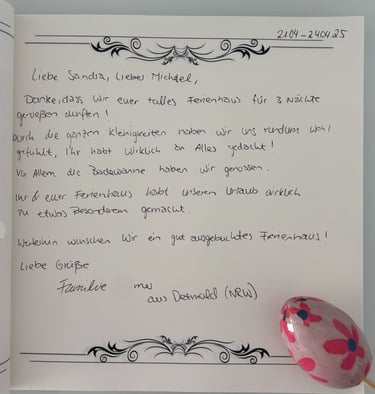 21.04 - 24.04.25
Liebe Sandra, Liebes Michael,
Danke, dass wir euer tolles Ferienhaus für 3 Nächte
genießen durften!
Durch die ganzen Kleinigkeiten haben wir uns rundum wohl
gefühlt, Ihr habt wirklich an Alles gedacht!
Vor Allem die Badewanne haben wir genossen.
Ihr & euer Ferienhaus habt unseren Urlaub wirklich
zu etwas Besonderem gemacht.
Weiterhin wünschen wir ein gut ausgebuchtes Ferienhaus!
Liebe Grüße
Familie
aus Detmold (NRW)